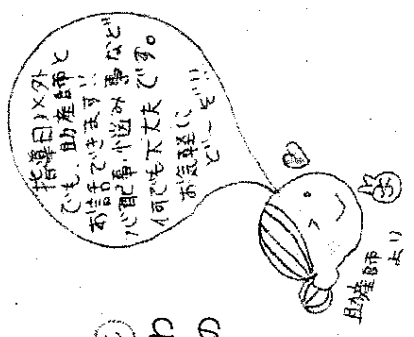 指導日以外
でも、助産師と
お話できます!!
心配事・悩み事など
何でも大丈夫です。
お気軽に
ど〜ぞ!!
助産師
より
わ
の